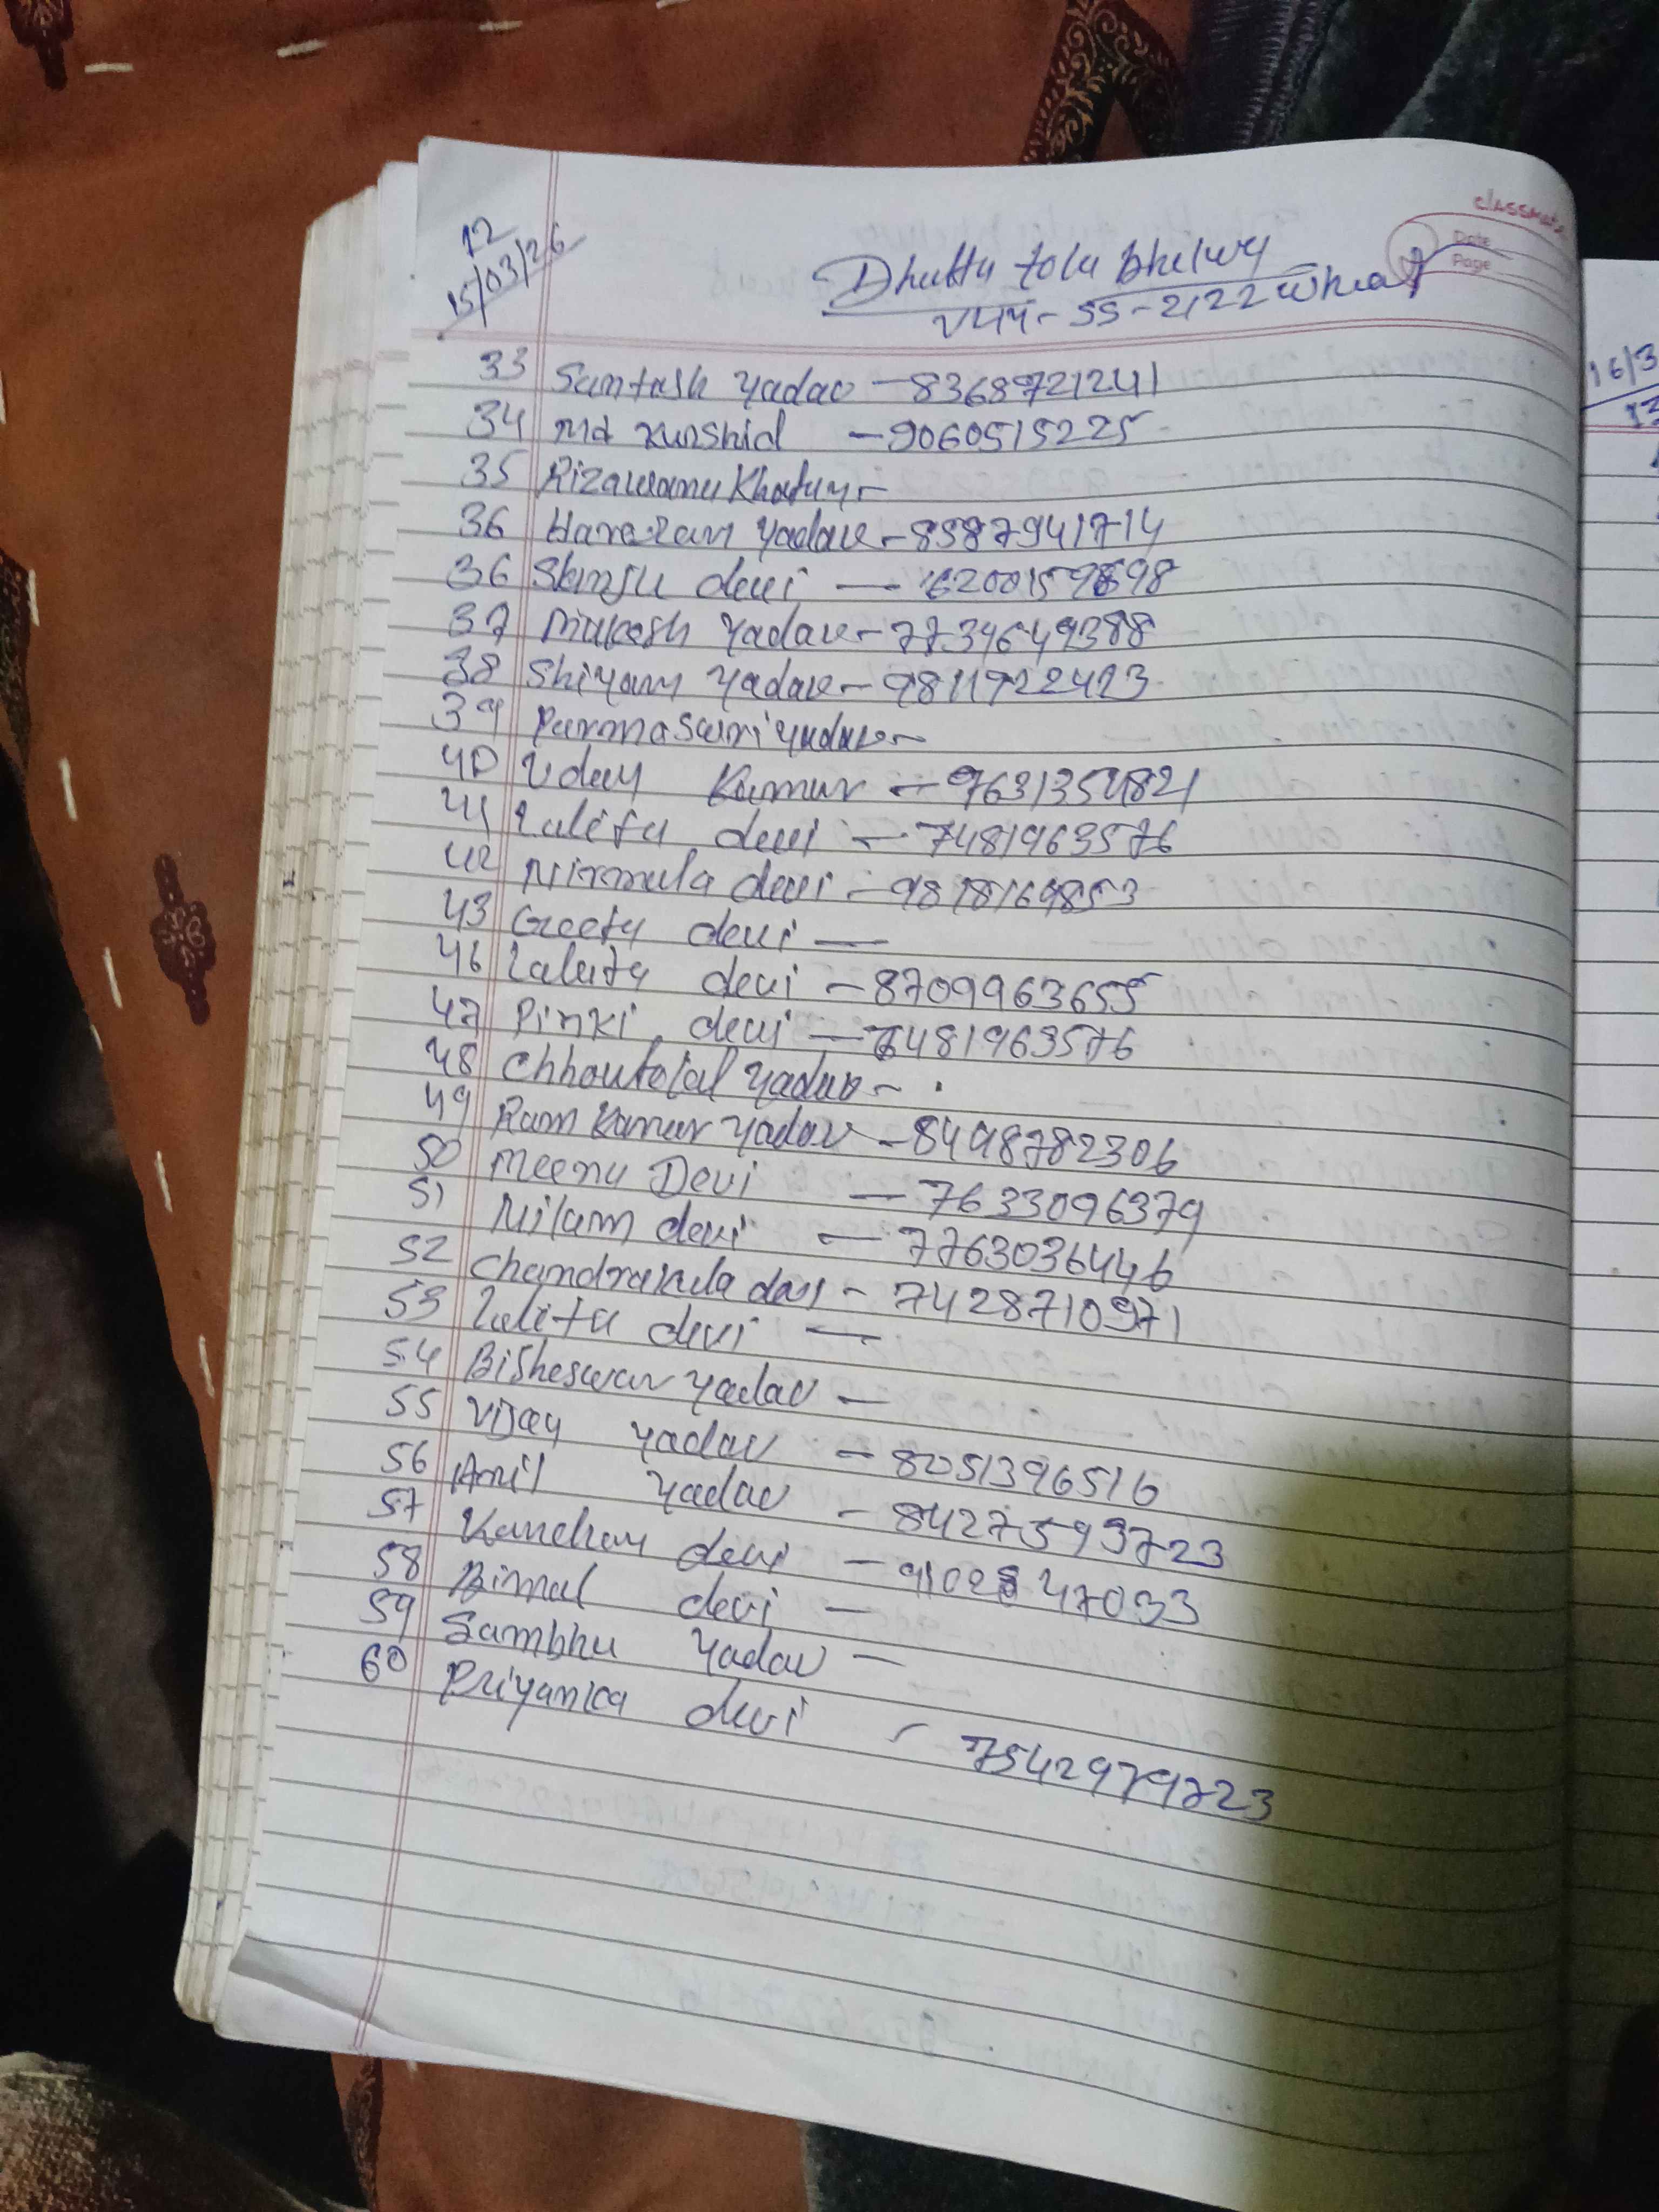 classmate
Date
Page
12
15/03/26
Dhutta tola bhelwy
SS-2122 wheat
33 Santush Yadav - 8368721241
34 Md Kurshid - 9060515225
35 Rizawanu Khatun -
36 Hare Ram Yadav - 8587941714
36 devi
37 Yadav - 7734649388
38 Shiyam Yadav - 9811922423
39 Parmaswri Yadav -
40 Uday Kumar - 9631354821
41 Lalita devi - 7481963576
42 Nirmula devi - 9818169853
43 Geeta devi -
46 Laleita devi - 8709963655
47 Pinki devi - 7481963576
48 Chhoutelal Yadav -
49 Ram Kumar Yadav - 8498782306
50 Meenu Devi - 7633096379
51 Nilam devi - 7763036446
52 Chandrakula - 7428710971
53 Lalita devi -
54 Bisheswar Yadav -
55 Vijay Yadav - 8051396516
56 Anil Yadav - 8427593723
57 Kanchan devi -
58 Bimal devi -
59 Sambhu Yadav -
60 Priyanka devi - 7542979723
16/3